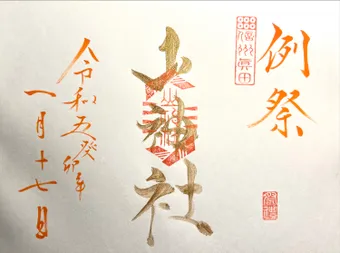 例祭
信州眞田
山神社
令和五癸卯年
一月十七日